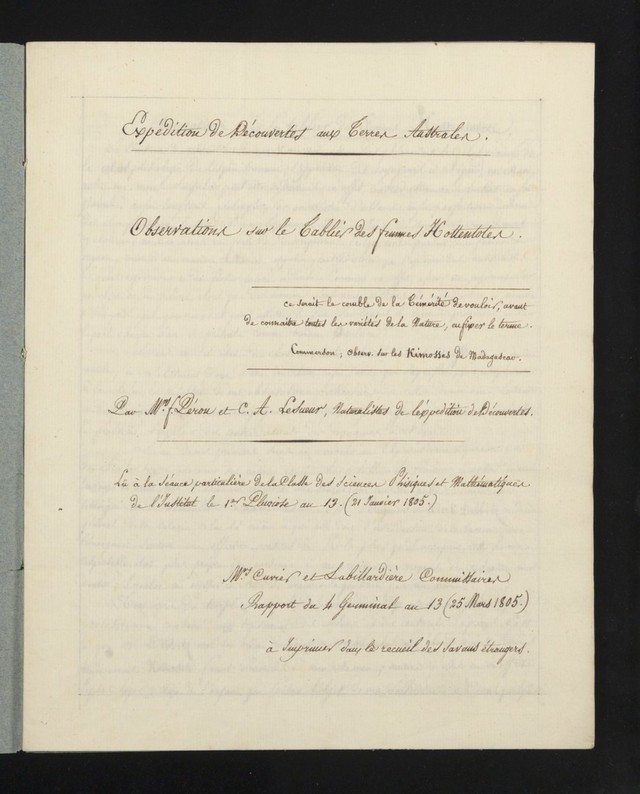 Expédition de Découvertes aux Terres Australes.
Observations sur le Tablier des femmes Hottentotes.
ce serait le comble de la Témérité de vouloir, avant
de connaître toutes les variétés de la Nature, en fixer le terme.
Commerson, Observ. sur les Kimosses de Madagascar.
Par Mrs f. Péron et C. A. LeSueur, Naturalistes de l'éxpédition de Découvertes.
Lû à la séance particulière de la Classe des Sciences Phisiques et Mathématiques
de l'Institut le 1er Pluviose an 13. (21 Janvier 1805.)
Mrs Cuvier et Labillardière Commissaires
Rapport du 4 Germinal an 13 (25 Mars 1805.)
à Imprimer dans le recueil des Savans étrangers.